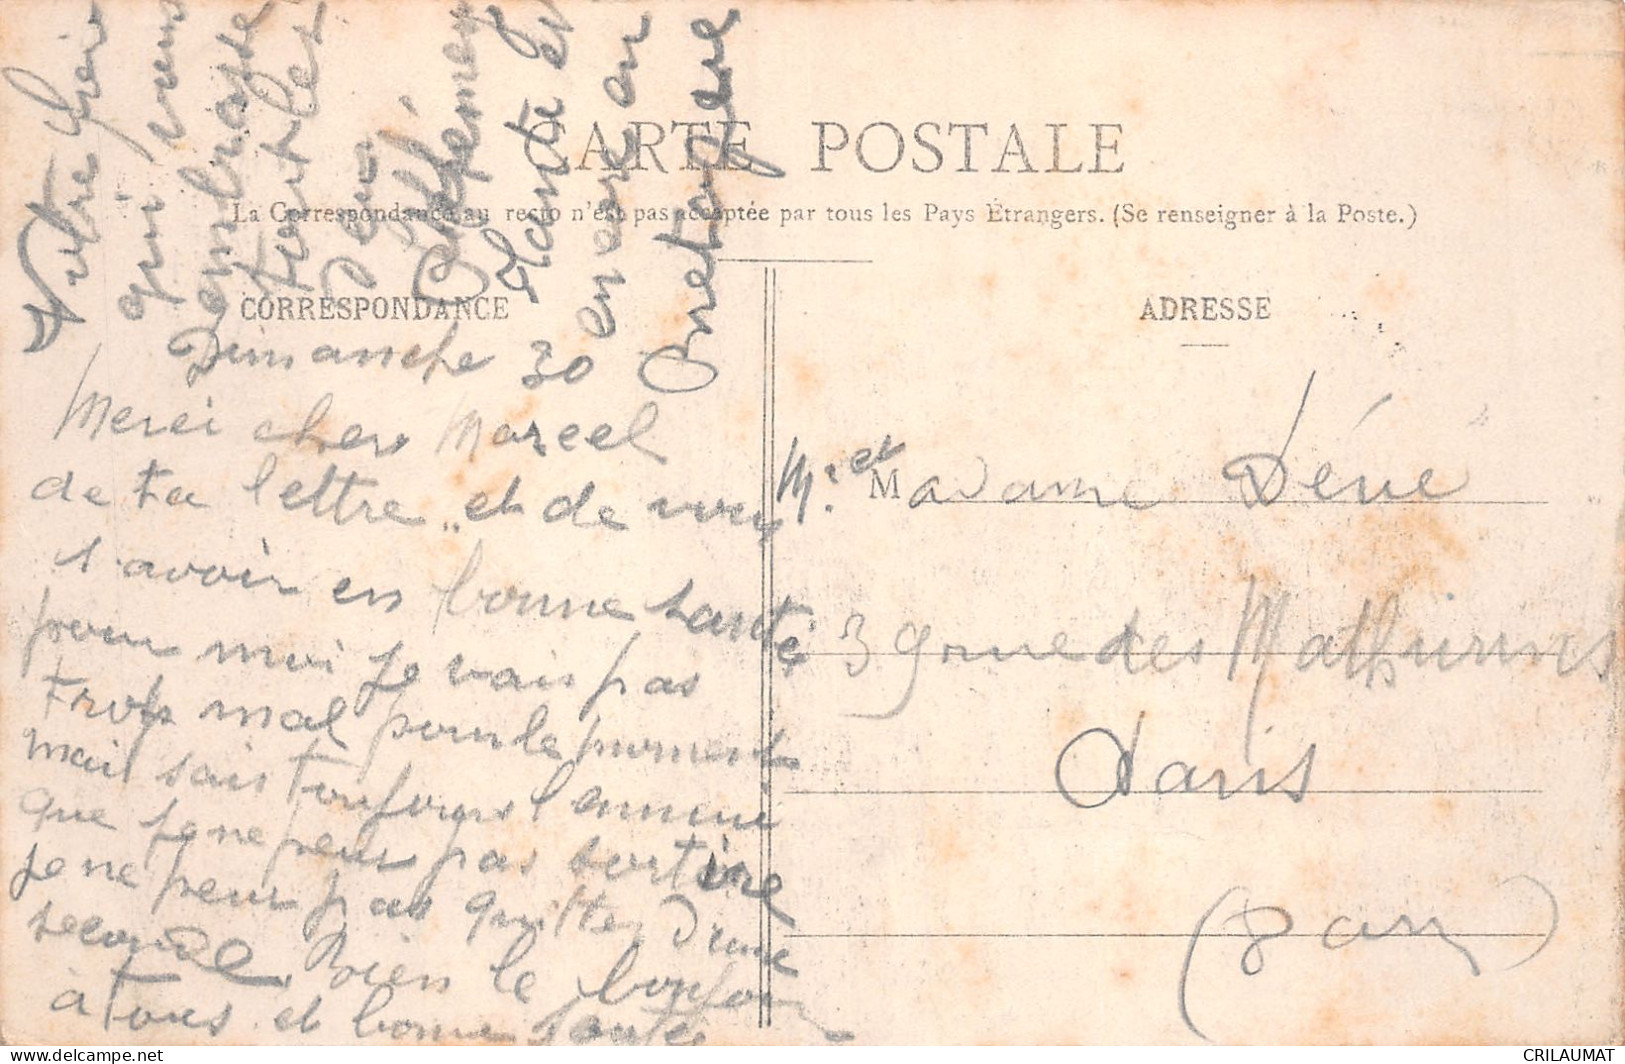 CARTE POSTALE
La Correspondance au recto n'est pas acceptée par tous les Pays Étrangers. (Se renseigner à la Poste.)
CORRESPONDANCE
Dimanche 30
Merci cher Marcel
de ta lettre et de vous
savoir en bonne santé
pour moi je vais pas
trop mal pour le moment
mais sais toujours l'ennui
que je ne peux pas sortir
je ne peux pas quitter d'une
seconde. Bien le bonjour
à tous et bonne santé
Votre
qui vous
embrasse
tout les
Euphémey
Plante et
encore en
Bretagne
ADRESSE
Mr et Madame Dévé
39 rue des Mathurins
Paris
CRILAUMAT